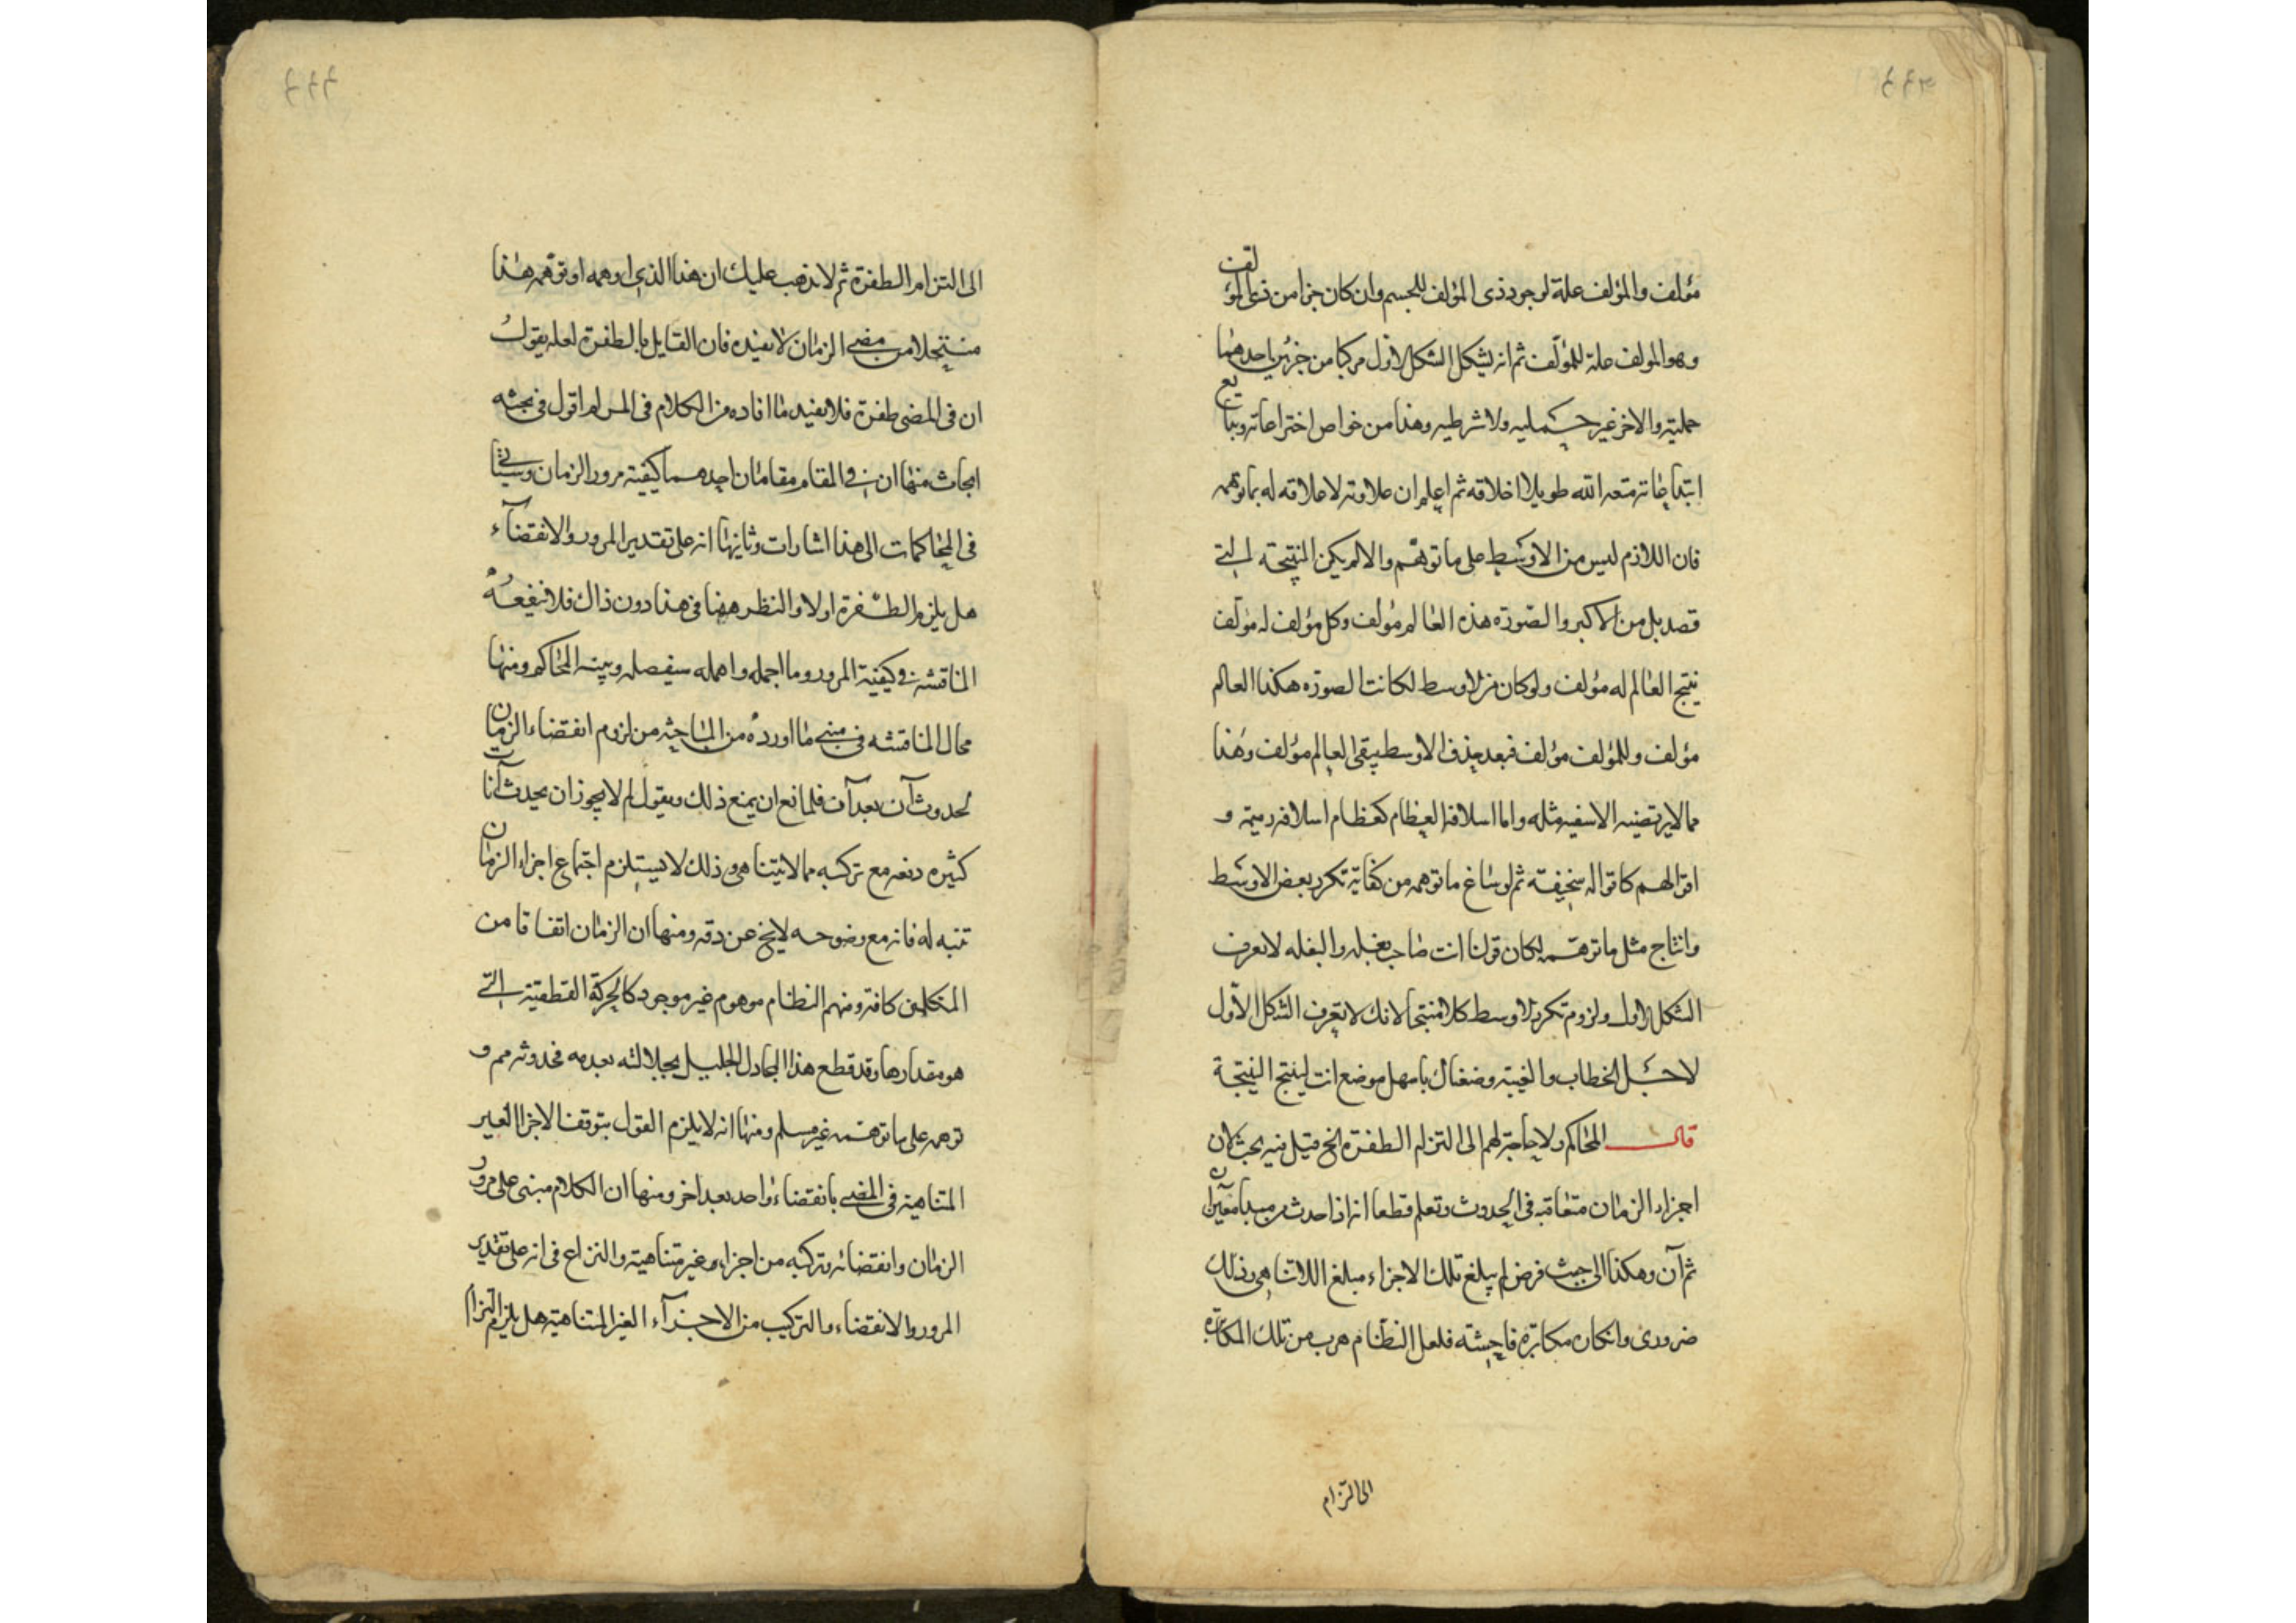 مؤلف والمؤلف علة لوجود ذى المؤلف للجسم وان كان جزا من ذى المؤلف
وهو المولف علة للمؤلف ثم انه يشكل الشكل الاول مركبا من جزئين احدهما
حملية والاخر غير حملية ولا شرطيه وهذا من خواص اختراعاته وبدايع
ابتداعاته متعه الله طويلا اخلاقه ثم اعلم ان علاوته لا علاقه له بما توهمه
فان اللازم ليس من الاوسط على ما توهم والا لم يكن النتيجة التى
قصد بل من الاكبر والصورة هذه العالم مؤلف وكل مؤلف له مؤلف
ينتج العالم له مؤلف ولو كان من الاوسط لكانت الصورة هكذا العالم
مؤلف وللمؤلف مؤلف فبعد حذف الاوسط يبقى العالم مؤلف وهذا
مما لا يرتضيه الا سفيه مثله واما اسلافه العظام كعظام اسلافه رميمة و
اقوالهم كاقواله سخيفة ثم لو ساغ ما توهمه من كفاية تكرر بعض الاوسط
وانتاج مثل ما توهمه لكان قولنا انت صاحب بغله والبغله لا تعرف
الشكل الاول ولزوم تكرر الاوسط كلاما منتجا لانك لا تعرف الشكل الاول
لاجل الخطاب والغيبة وضعناك يا مهمل موضع انت لينتج النتيجة
قال المحاكم ولا حاجة لهم الى التزام الطفرة الخ قيل فيه بحث لان
اجزاء الزمان متعاقبه فى الحدوث وتعلم قطعا انه اذا حدث من مبدا معين آن
ثم آن وهكذا الى حيث فرض لم يبلغ تلك الاجزاء مبلغ اللاتناهى وذلك
ضرورى وانكاره مكابرة فاحشة فلعل النظام هرب من تلك المكابرة
الى التزام
الى التزام الطفرة ثم لا يذهب عليك ان هذا الذى اوهمه او توهمه هذا
منتحلا من مضى الزمان لا يفيده فان القايل بالطفرة لعله يقول
ان فى المضى طفرة فلا يفيد ما افاده من الكلام فى المرام اقول فى بحثه
ابحاث منها ان فى المقام مقامان احدهما كيفية مرور الزمان وسياتى
فى المحاكمات الى هذا اشارات وثانيها انه على تقدير المرور والانقضاء
هل يلزم الطفرة اولا والنظر ههنا فى هذا دون ذاك فلا ينفعه
المناقشه فى كيفية المرور وما اجمله واهمله سيفصله ويبينه المحاكم ومنها
محال المناقشه فى مبنى ما اورده من المباحثه من لزوم انقضاء الزمان
لحدوث آن بعد آن فلمانع ان يمنع ذلك ويقول لم لا يجوز ان يحدث آنات
كثيره دفعه مع تركبه مما لا يتناهى وذلك لا يستلزم اجتماع اجزاء الزمان
تنبه له فانه مع وضوحه لا يخ عن دقه ومنها ان الزمان اتفاقا من
المتكلمين كافة ومنهم النظام موهوم غير موجود كالحركة القطعية التى
هو مقدارها وقد قطع هذا المجادل الجليل بجلالته بعدمه فحدوثه مم و
توهمه على ما توهمه غير مسلم ومنها انه لا يلزم القول بتوقف الاجزا الغير
المتناهية فى المضى بانقضاء واحد بعد اخر ومنها ان الكلام مبنى على مرور
الزمان وانقضائه وتركبه من اجزاء غير متناهية والنزاع فى انه على تقدير
المرور والانقضاء والتركيب من الاجزآء الغير المتناهية هل يلزم التزام